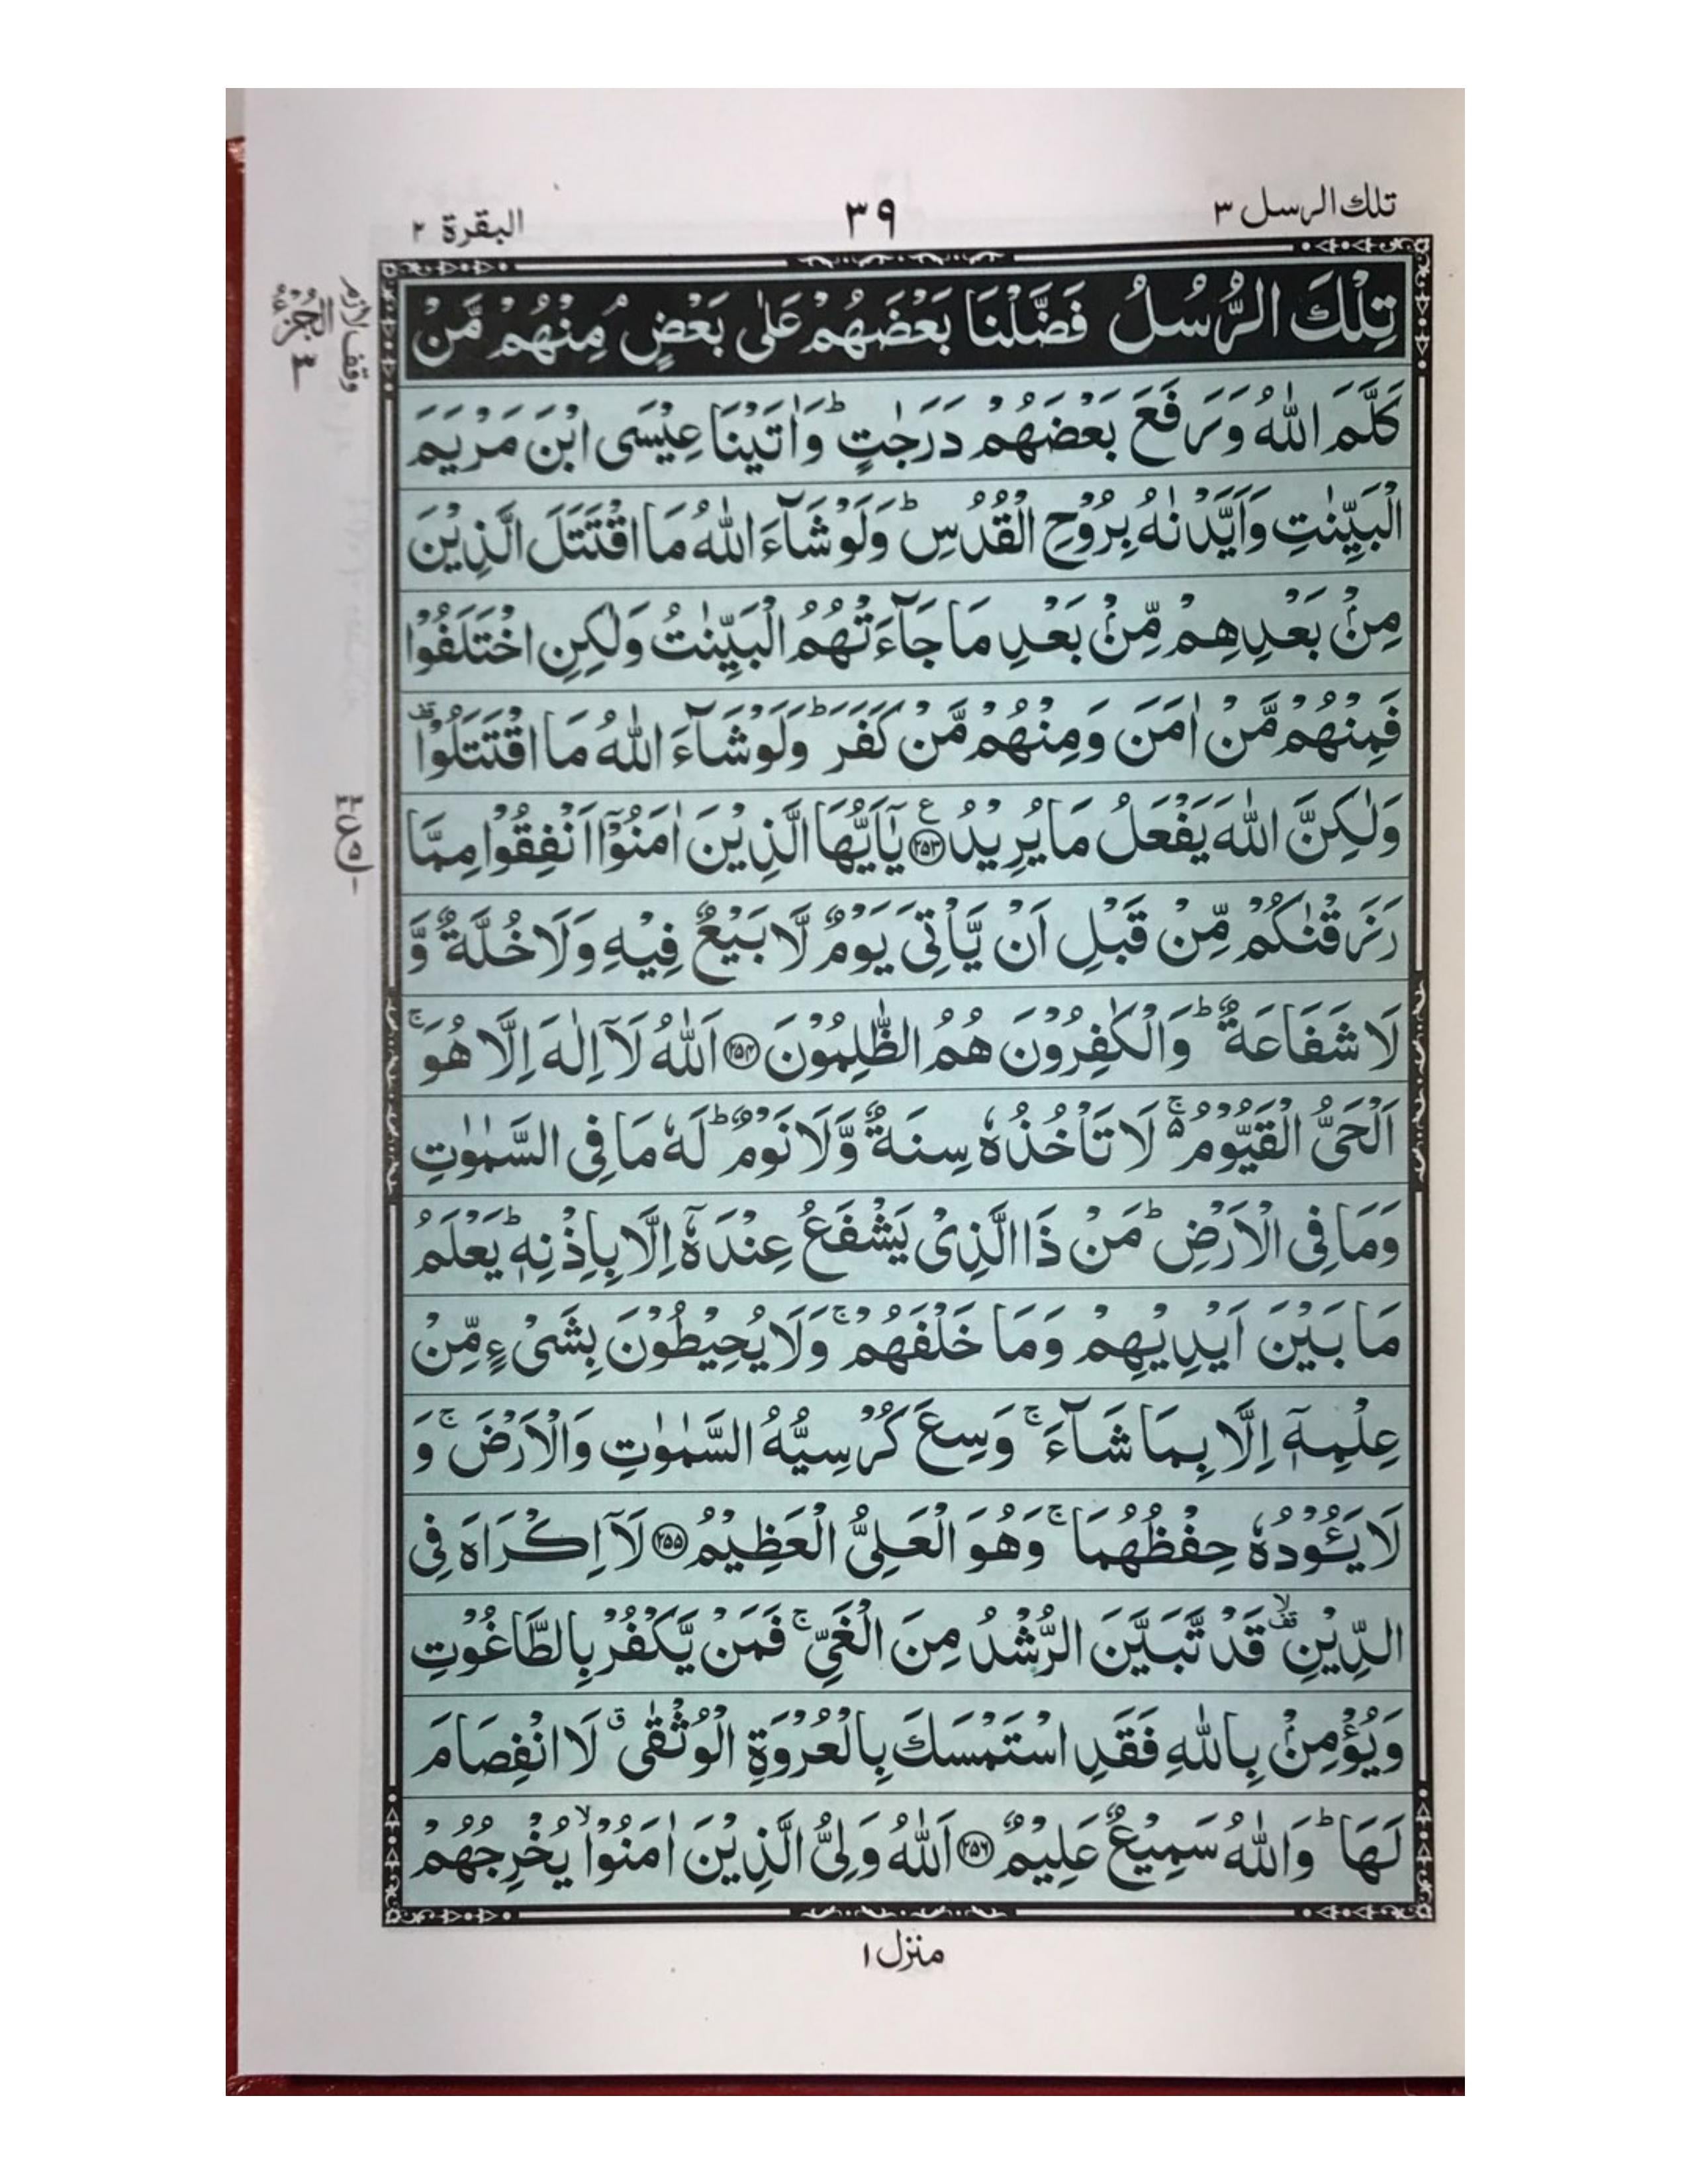 تلك الرسل ٣
٣٩
البقرة ٢
تِلْكَ الرُّسُلُ فَضَّلْنَا بَعْضَهُمْ عَلٰى بَعْضٍ ۘ مِنْهُمْ مَّنْ
كَلَّمَ اللّٰهُ وَرَفَعَ بَعْضَهُمْ دَرَجٰتٍ ؕ وَاٰتَيْنَا عِيْسَى ابْنَ مَرْيَمَ
الْبَيِّنٰتِ وَاَيَّدْنٰهُ بِرُوْحِ الْقُدُسِ ؕ وَلَوْ شَآءَ اللّٰهُ مَا اقْتَتَلَ الَّذِيْنَ
مِنْۢ بَعْدِهِمْ مِّنْۢ بَعْدِ مَا جَآءَتْهُمُ الْبَيِّنٰتُ وَلٰكِنِ اخْتَلَفُوْا
فَمِنْهُمْ مَّنْ اٰمَنَ وَمِنْهُمْ مَّنْ كَفَرَ ؕ وَلَوْ شَآءَ اللّٰهُ مَا اقْتَتَلُوْا قف
وَلٰكِنَّ اللّٰهَ يَفْعَلُ مَا يُرِيْدُ ﴿۲۵۳﴾ ع يٰۤاَيُّهَا الَّذِيْنَ اٰمَنُوْۤا اَنْفِقُوْا مِمَّا
رَزَقْنٰكُمْ مِّنْ قَبْلِ اَنْ يَّاْتِىَ يَوْمٌ لَّا بَيْعٌ فِيْهِ وَلَا خُلَّةٌ وَّ
لَا شَفَاعَةٌ ؕ وَالْكٰفِرُوْنَ هُمُ الظّٰلِمُوْنَ ﴿۲۵۴﴾ اَللّٰهُ لَاۤ اِلٰهَ اِلَّا هُوَ ۚ
اَلْحَىُّ الْقَيُّوْمُ ۬ۚ لَا تَاْخُذُهٗ سِنَةٌ وَّلَا نَوْمٌ ؕ لَهٗ مَا فِى السَّمٰوٰتِ
وَمَا فِى الْاَرْضِ ؕ مَنْ ذَا الَّذِىْ يَشْفَعُ عِنْدَهٗۤ اِلَّا بِاِذْنِهٖ ؕ يَعْلَمُ
مَا بَيْنَ اَيْدِيْهِمْ وَمَا خَلْفَهُمْ ۚ وَلَا يُحِيْطُوْنَ بِشَىْءٍ مِّنْ
عِلْمِهٖۤ اِلَّا بِمَا شَآءَ ۚ وَسِعَ كُرْسِيُّهُ السَّمٰوٰتِ وَالْاَرْضَ ۚ وَ
لَا يَـُٔوْدُهٗ حِفْظُهُمَا ۚ وَهُوَ الْعَلِىُّ الْعَظِيْمُ ﴿۲۵۵﴾ لَاۤ اِكْرَاهَ فِى
الدِّيْنِ ۙ قف قَدْ تَّبَيَّنَ الرُّشْدُ مِنَ الْغَىِّ ۚ فَمَنْ يَّكْفُرْ بِالطَّاغُوْتِ
وَيُؤْمِنْۢ بِاللّٰهِ فَقَدِ اسْتَمْسَكَ بِالْعُرْوَةِ الْوُثْقٰى ق لَا انْفِصَامَ
لَهَا ؕ وَاللّٰهُ سَمِيْعٌ عَلِيْمٌ ﴿۲۵۶﴾ اَللّٰهُ وَلِىُّ الَّذِيْنَ اٰمَنُوْا ۙ يُخْرِجُهُمْ
وقف لازم
الجزء
٣
منزل ١